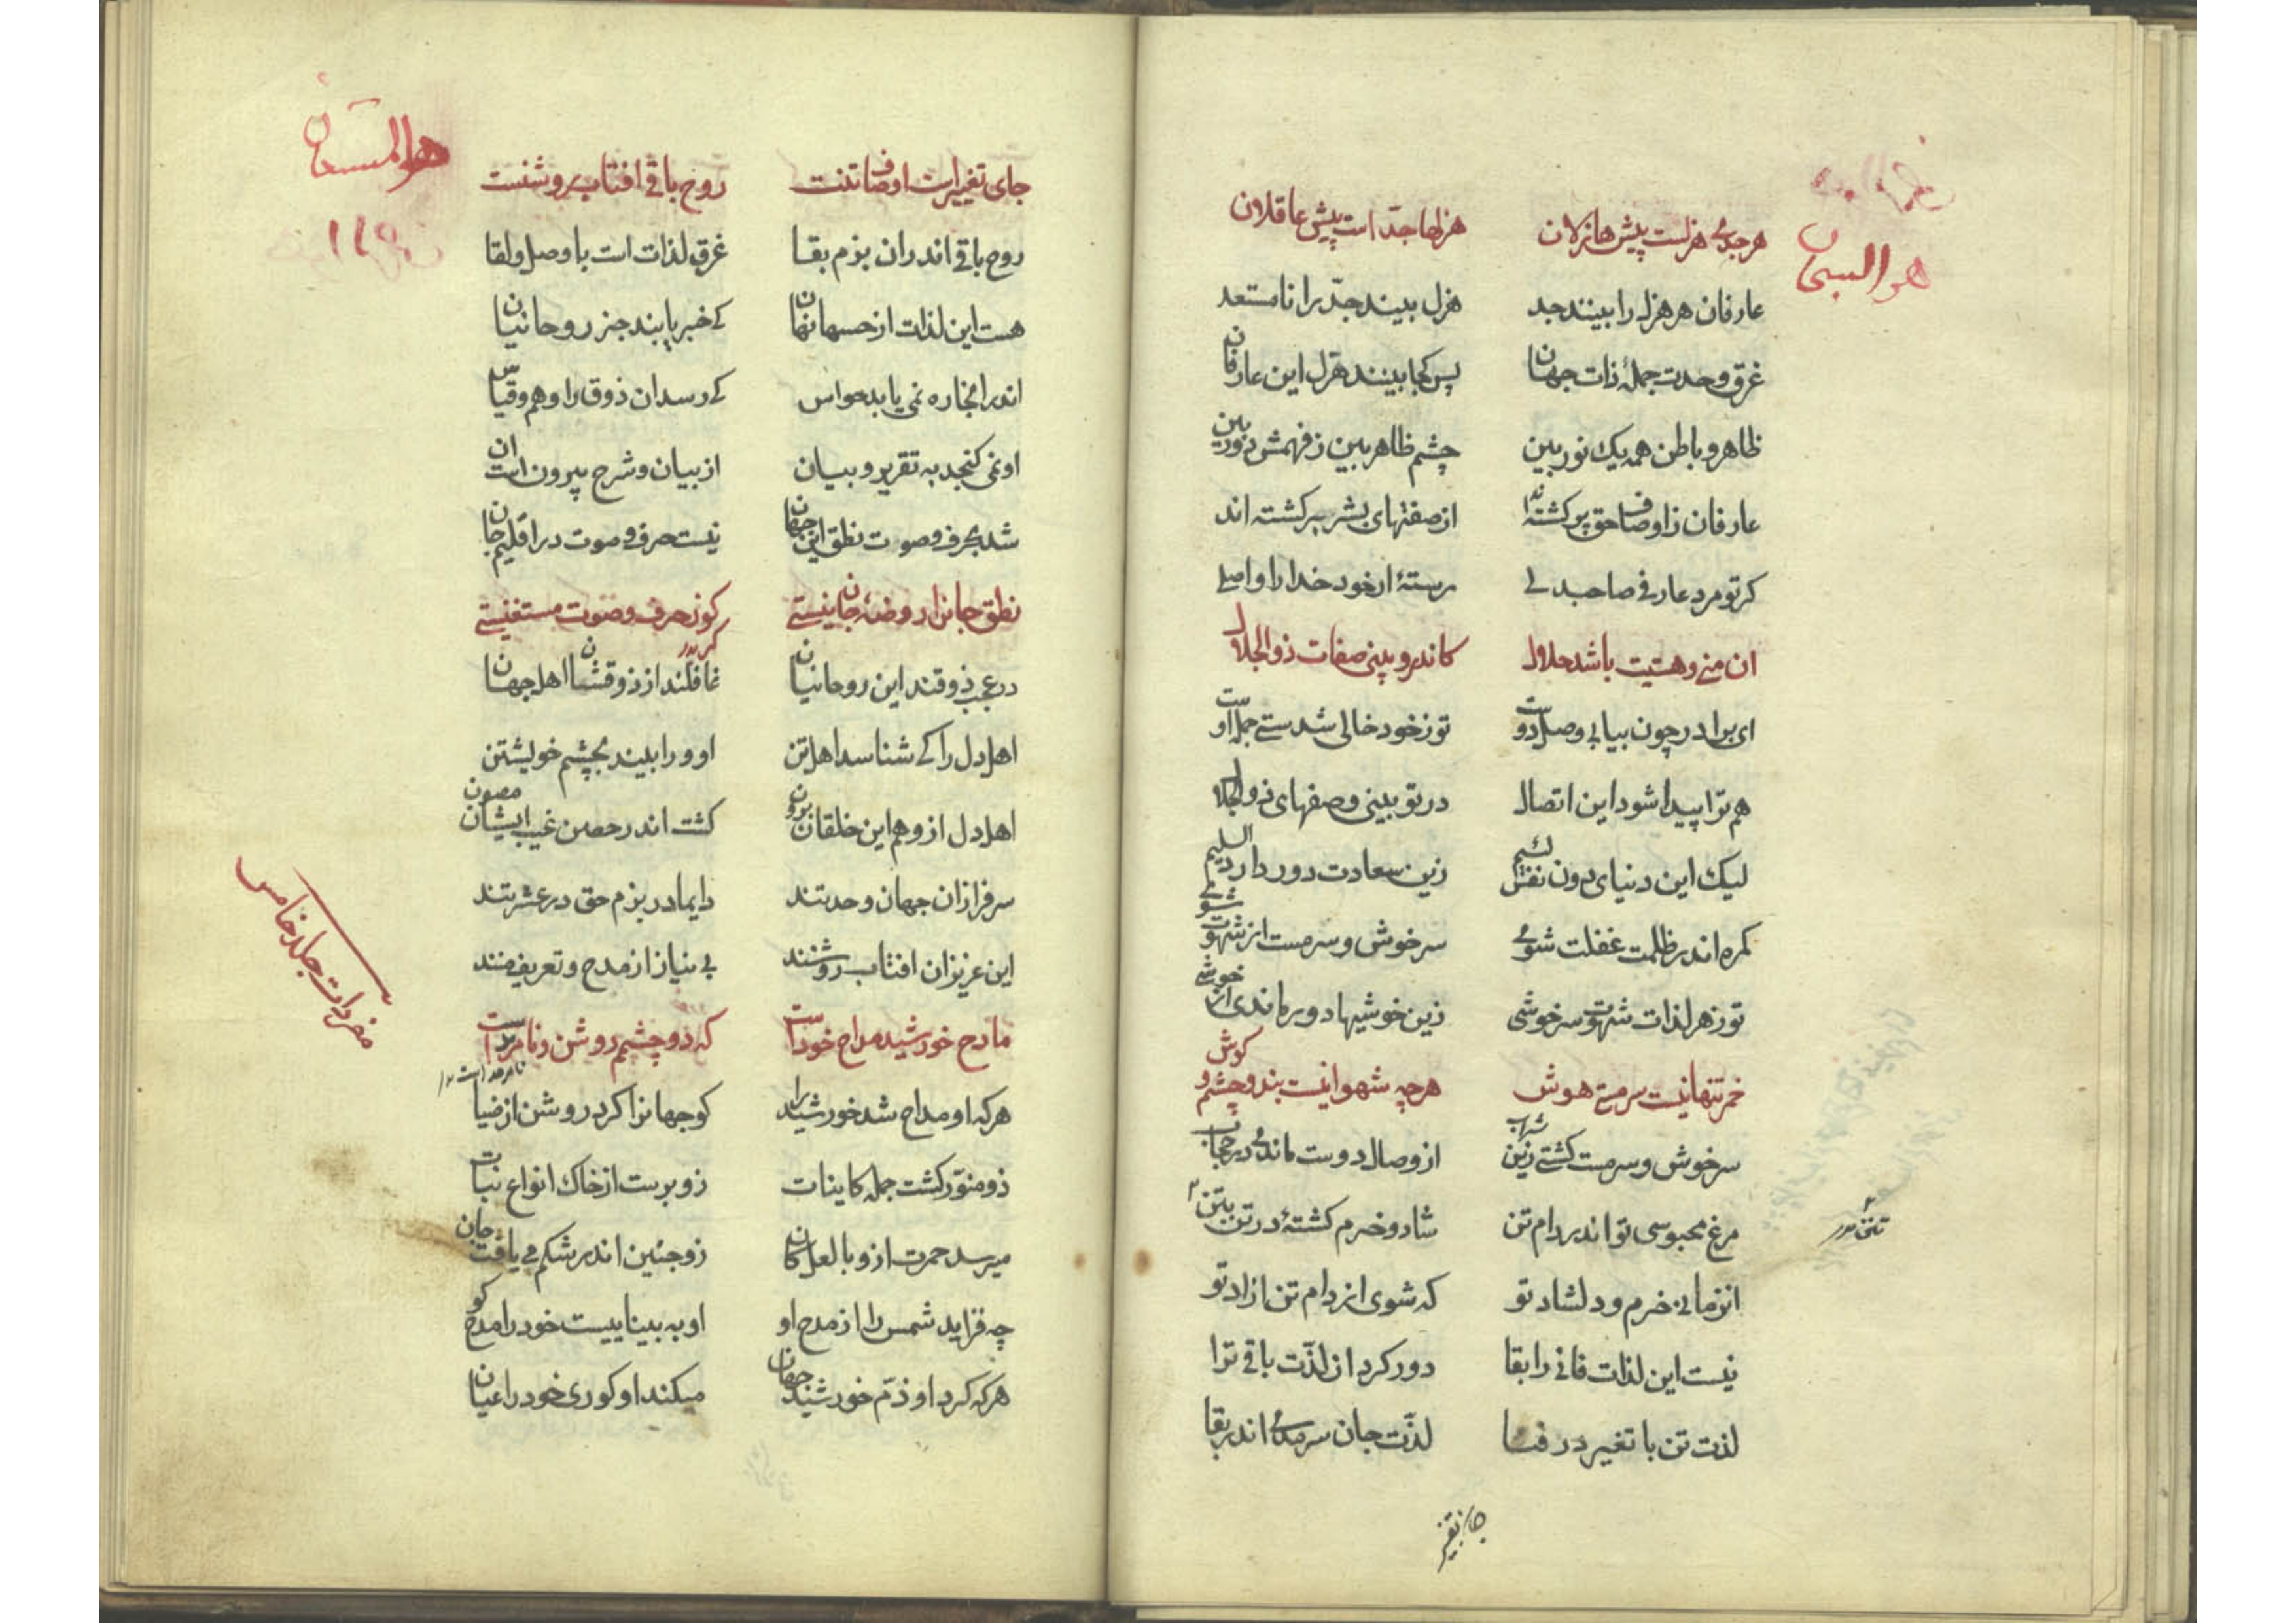 هو السبحان
هر جدی هزلست پیش هازلان هزلها جدّ است پیش عاقلان
عارفان هر هزل را بینند جد هزل بیند جدّ را نامستعد
غرق وحدت جملهٔ ذات جهان پس کجا بینند هزل این عارفان
ظاهر و باطن همه یک نور بین چشم ظاهر بین ز فهمش دوربین
عارفان ز اوصاف حق پر کشته‌اند از صفتهای بشر بر کشته اند
کر تو مرد عارفی صاحبدلی رستهٔ از خود خدا را واصلی
ان منی و هستیت باشد حلال کاندرو بینی صفات ذوالجلال
ای برادر چون بیابی وصل دوست تو ز خود خالی شدستی جمله اوست
هم ترا پیدا شود این اتصال در تو بینی وصفهای ذوالجلال
لیک این دنیای دون نفس لئیم زین سعادت دور دارد ای سلیم
کمره اندر ظلمت غفلت شوی سرخوش و سرمست از شهوت شوی
تو ز هر لذات شهوت سرخوشی زین خوشیها دور ماندی از خوشی
خمر تنها نیست سرمستی هوش هرچه شهوانیست بندد چشم و کوش
سرخوش و سرمست کشتی زین شراب از وصال دوست ماندی در حجاب
مرغ محبوسی تو اندر دام تن شاد و خرم کشتهٔ در تن بتن
انزمانی خرم و دلشاد تو که شوی از دام تن ازاد تو
نیست این لذات فانی را بقا دور کرد از لذّت باقی ترا
لذت تن با تغییر در فنا لذّت جان سرمدی اندر بقا
هو المستعان
جای تغییر است اوصاف تنت روح باقی افتاب روشنست
روح باقی اندران بزم بقا غرق لذات است با وصل و لقا
هست این لذات از حسها نهان کی خبر یابند جز روحانیان
اندر انجا ره نمی یابد حواس کی رسد ان ذوق را وهم و قیاس
او نمی کنجد به تقریر و بیان از بیان و شرح بیرون است ان
شد بحرف و صوت نطق این جهان نیست حرف و صوت در اقلیم جان
نطق جانرا روضهٔ جانیستی کو ز حرف و صوت مستغنیستی
در عجب ذوقند این روحانیان غافلند از ذوقشان اهل جهان
اهل دل را کی شناسد اهل تن او ورا بیند بچشم خویشتن
اهل دل از وهم این خلقان برون کشت اند در حصن غیب ایشان مصون
سرفرازان جهان وحدتند دایما در بزم حق در عشرتند
این عزیزان افتاب روشنند بی نیاز از مدح و تعریف منند
مادح خورشید مداح خود است که دو چشمم روشن و نامرمد است
هرکه او مداح شد خورشید را کو جهانرا کرد روشن از ضیا
زو منوّر کشت جمله کاینات زو برست از خاک انواع نبات
میرسد حمرت ازو با لعل کان زو جنین اندر شکم می یافت جان
چه فزاید شمس را از مدح او او به بیناییست خود را مدح کو
هرکه کرد او ذمّ خورشید جهان میکند او کوری خود را عیان